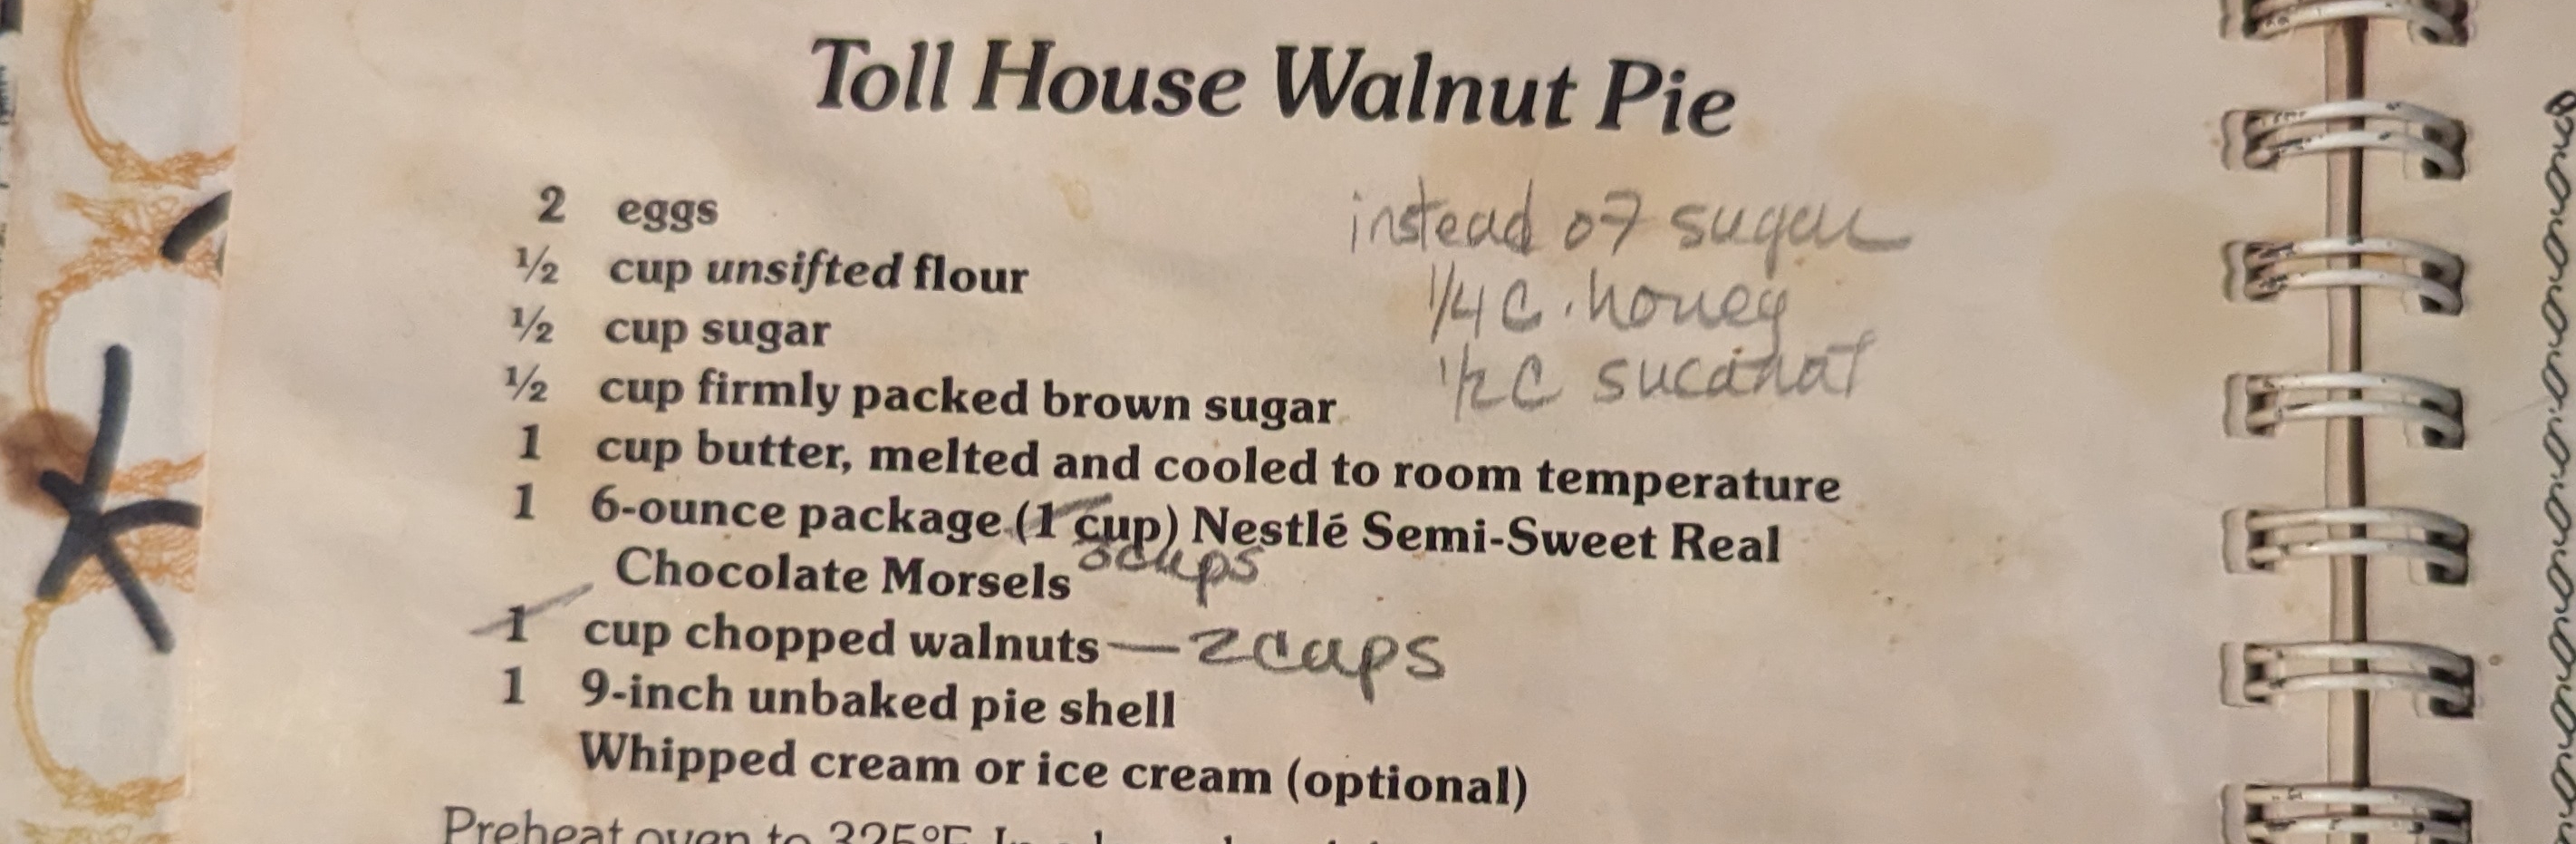 Toll House Walnut Pie
2 eggs
½ cup unsifted flour
½ cup sugar
½ cup firmly packed brown sugar
instead of sugar
1/4 C. honey
1/2 C sucanat
1 cup butter, melted and cooled to room temperature
1 6-ounce package (1 cup) Nestlé Semi-Sweet Real
Chocolate Morsels
cups
1 cup chopped walnuts — 2 cups
1 9-inch unbaked pie shell
Whipped cream or ice cream (optional)
Preheat oven to 325°F.